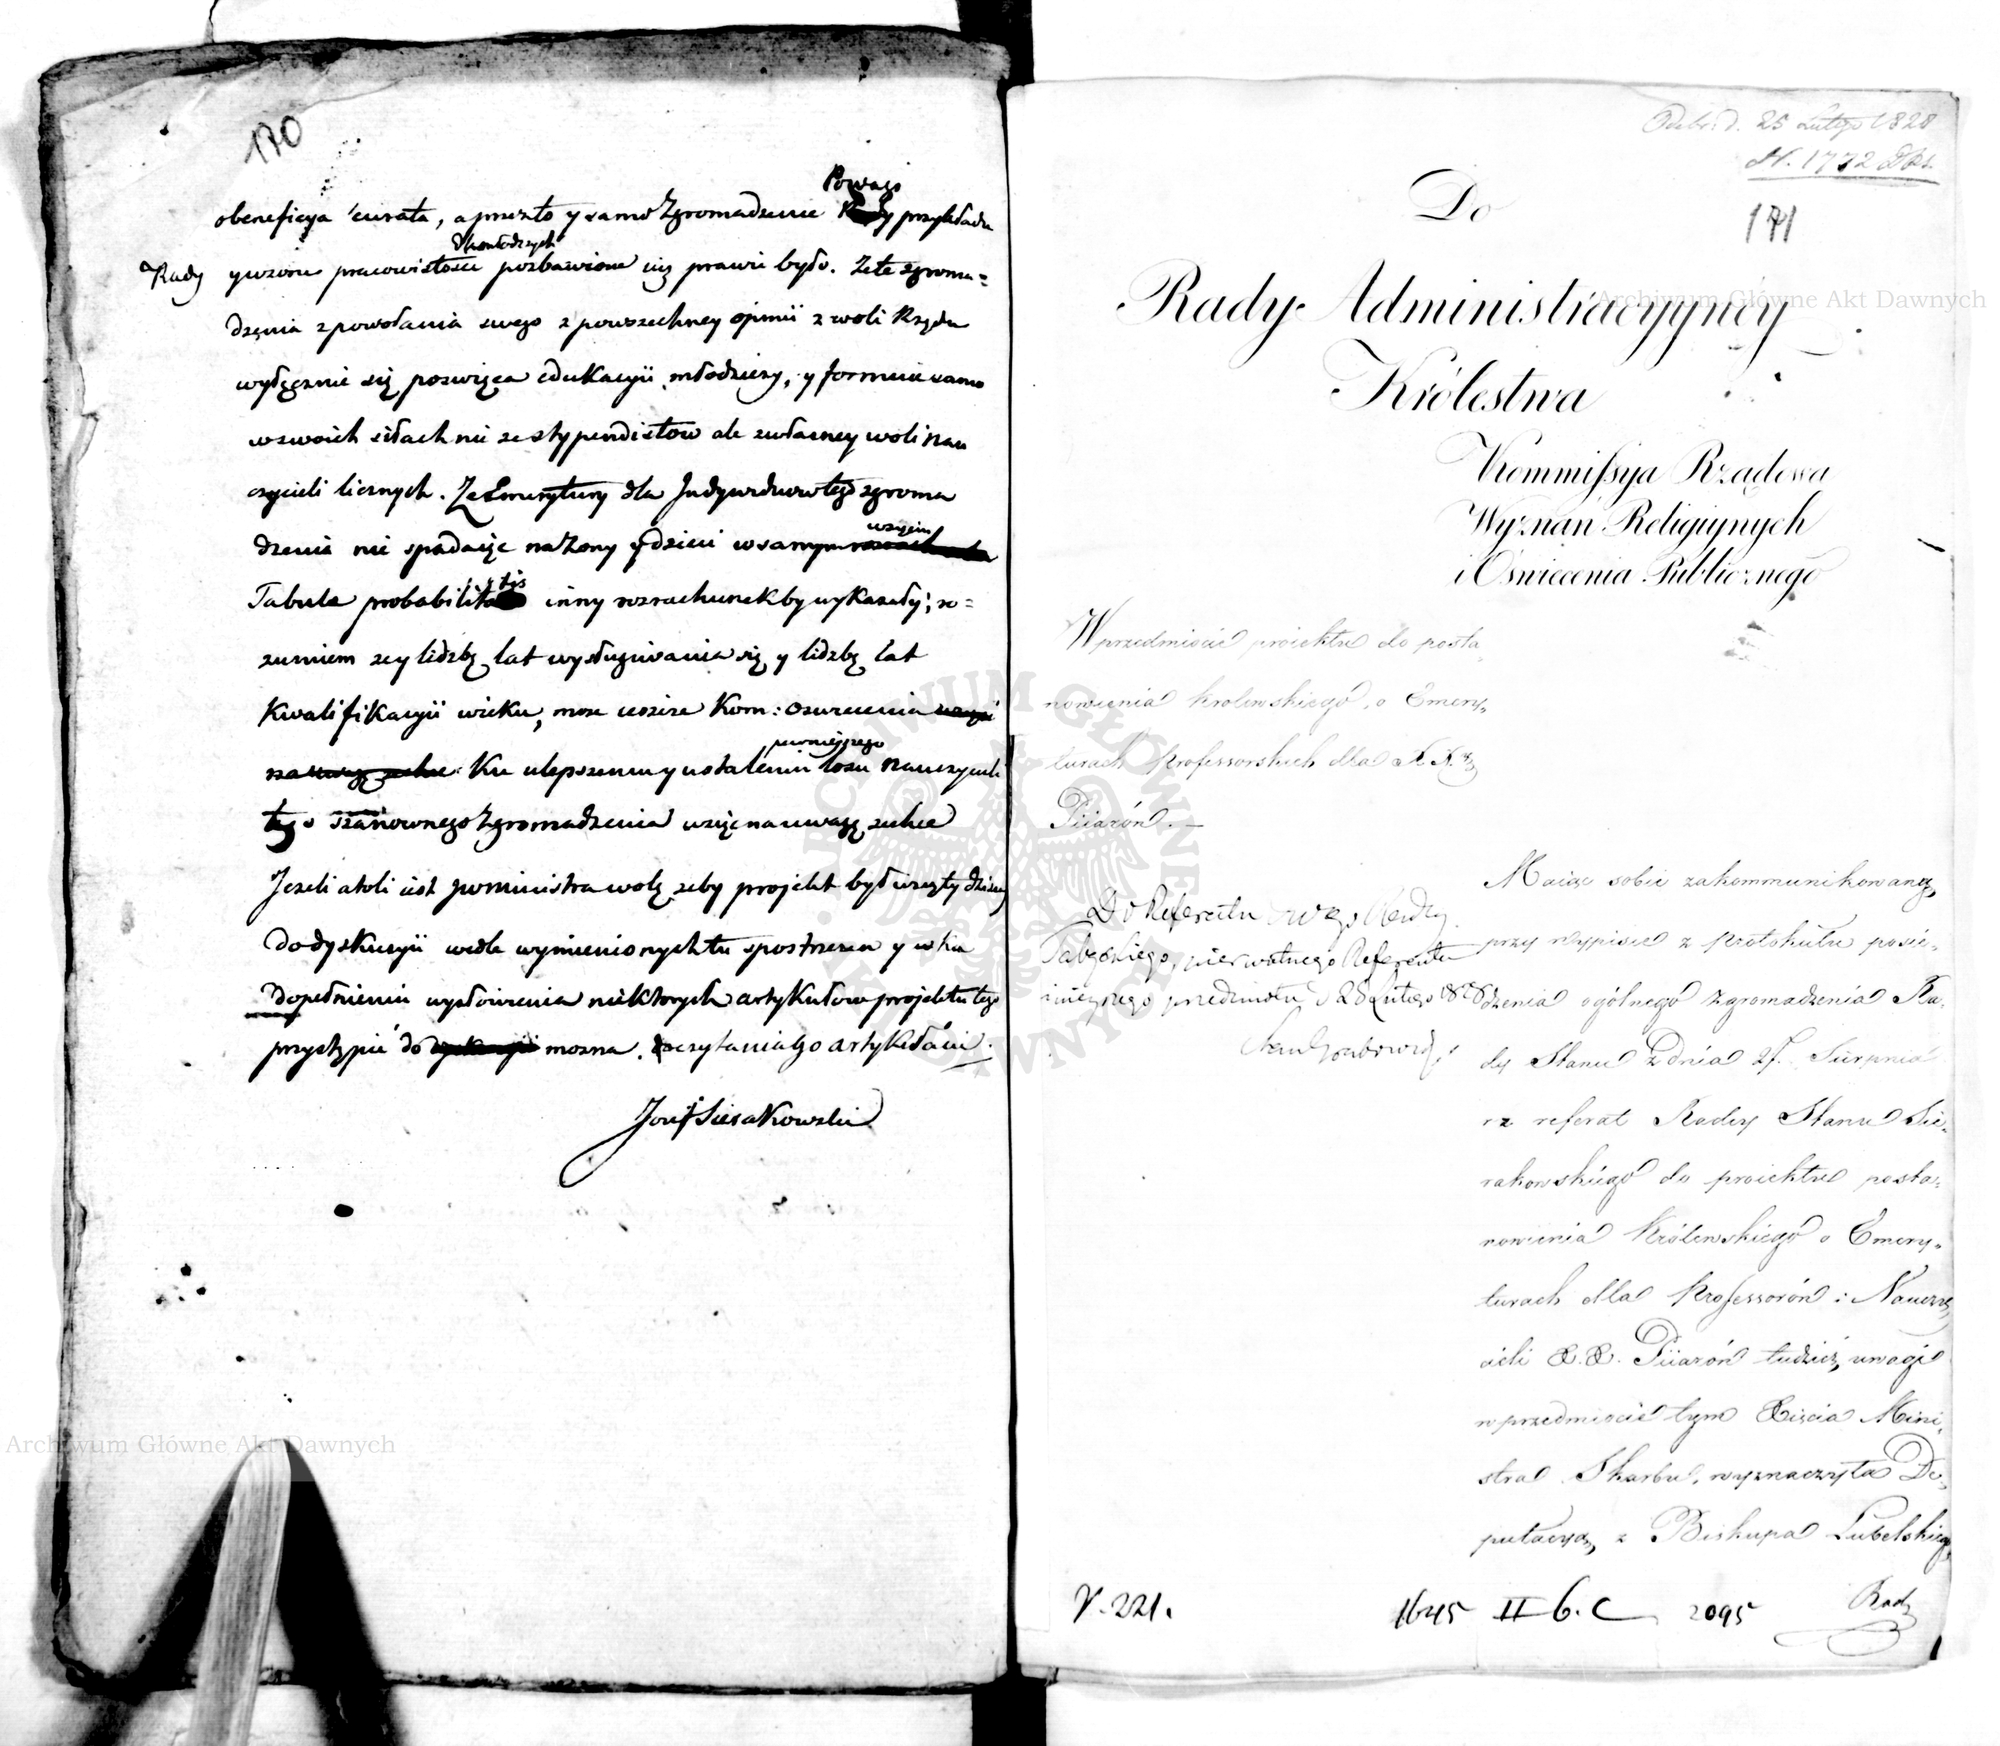 170
Powago
obeneficya curata, a przeto y samo Zgromadzenie przykładu
dla młodszych
Rady y wzoru pracowistości pozbawione iuż prawie było. Że te zgroma=
dzenia z powołania swego z powszechney opinii z woli Rządu
wyłącznie się poswięca edukacyii młodzieży, y formuie samo
w swoich siłach nie ze stypendistow ale z własney woli nau
czycieli licznych. Ze Emerytury dla Indywiduow tego zgroma
wzięciu
dzenia nie spadaiąc na Żony y dzieci w samym
Tabula probabilitatis inny rozrachunek by wykazały; ro=
zumiem zey lidzbę lat wysługiwania się y lidzbę lat
Kwalifikacyii wieku, moze ieszcze Kom: oswiecenia
pewnieyszego
Ku ulepszeniu y ustaleniu losu nauczycieli
tego szanownego Zgromadzenia wziąc na uwagę zechce
Jezeli atoli iest Xcia ministra wolą zeby projekt był wzięty dzisiay
do dyskucyii wedle wymienionych tu spostrzezen y
dopełnieniu wysłowienia niektorych artykułow projektu tego
przystąpić do mozna. czytania go artykułami.
Jozef Sierakowski
Odebr: d. 25 Lutego 1828
N. 1772
171
Do
Rady Administracyyney
Królestwa
Kommissya Rządowa
Wyznań Religiynych
i Oświecenia Publicznego
W przedmiocie proiektu do posta
nowienia Krolewskiego, o Emery=
turach Professorskich dla X.X.
Piiarów. —
Do Referatu Radzcy
pierwotnego Referenta
ninieyszego przedmiotu d 28 Lutego 1828
Maiąc sobie zakommunikowany
przy wypisie z Protokułu posie=
dzenia ogólnego Zgromadzenia Ra=
dy Stanu z dnia 27. Sierpnia
r z referat Radcy Stanu Sie=
rakowskiego do proiektu posta=
nowienia Królewskiego o Emery=
turach dla Professorów i Nauczy
cieli X.X. Piiarów tudzież uwagi
w przedmiocie tym Xięcia Mini=
stra Skarbu, wyznaczyła De=
putacyą z Biskupa Lubelskiego
Radz
V. 221.
1645 II 6. C 2095
Archiwum Główne Akt Dawnych
Archiwum Główne Akt Dawnych
ARCHIWUM GŁÓWNE AKT DAWNYCH